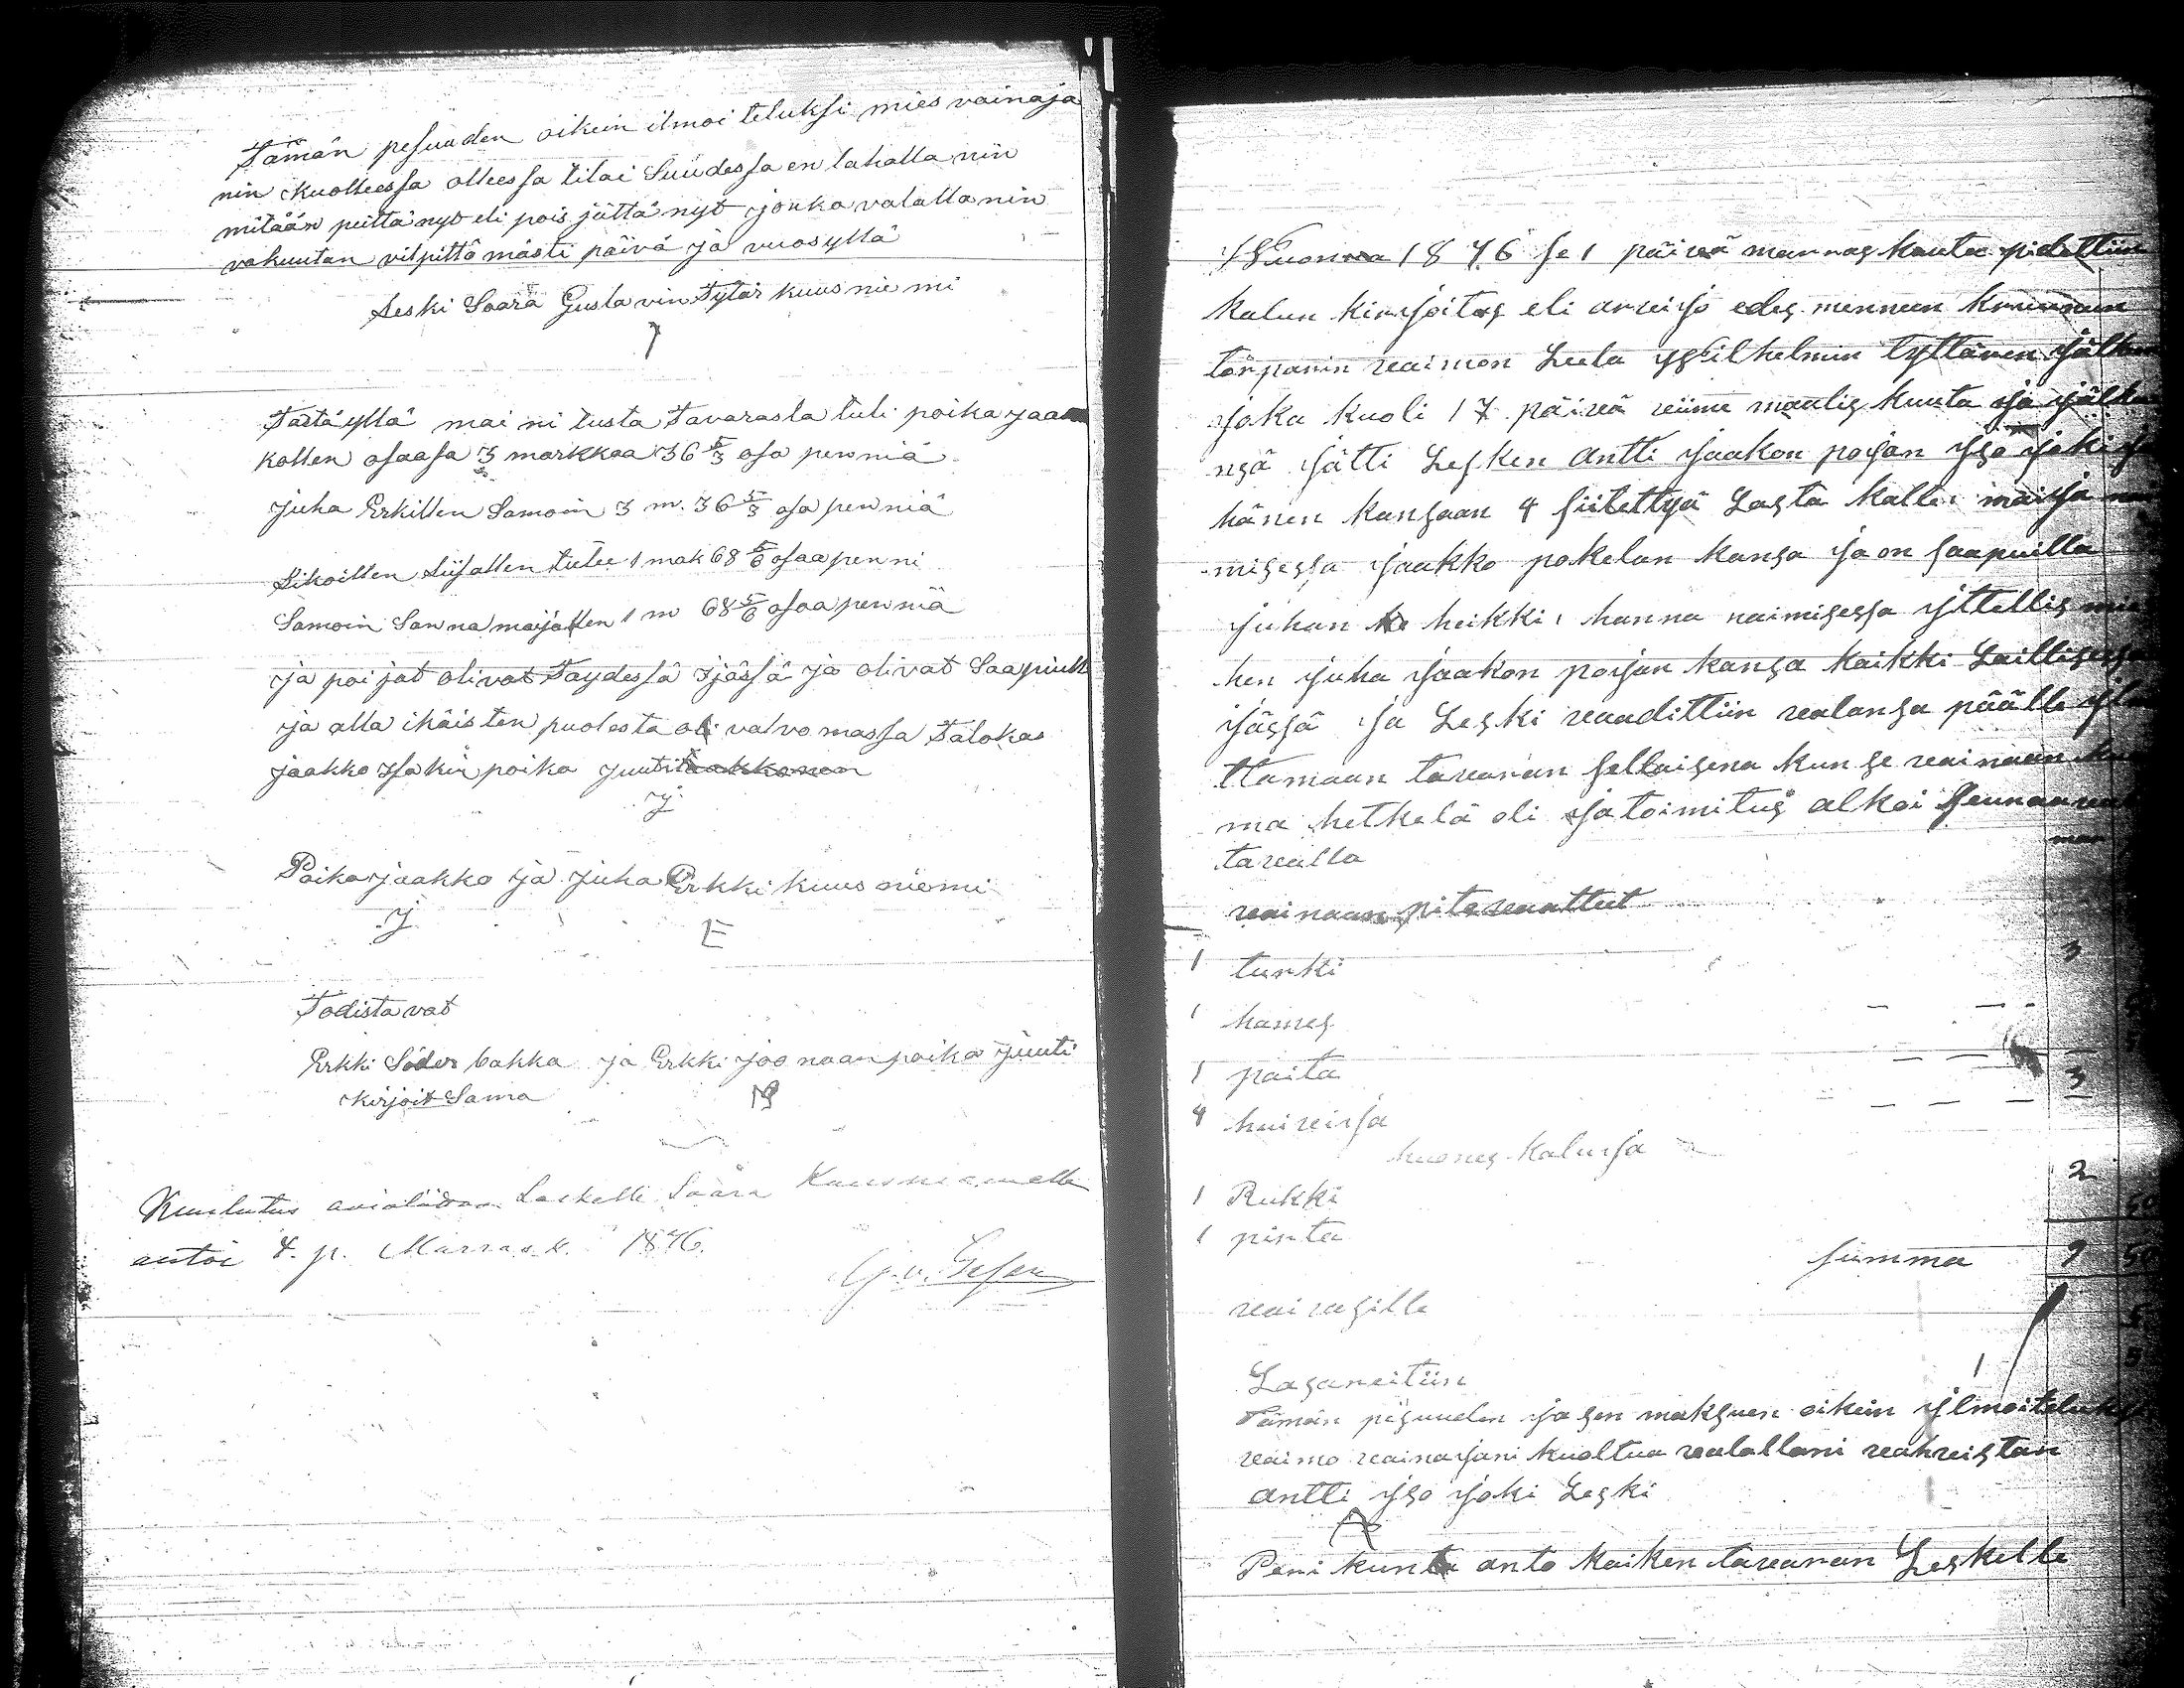 Tämän pesuuden oikein ilmoi teluksi mies vainaja
nin kuolleessa olleessa tilai Suudessa en tahalla nin
mitään peittä nyt eli pois jättä nyt jonka valalla nin
vakuutan vilpittö mästi päivä ja vuosyllä
Leski Saara Gusta vin Tytär kuus nie mi
Tästä yllä mai ni tusta Tavarasta tuli poika jaa
kollen osaasa 3 markkaa 36 5/3 osa penniä
juha Erkillen Samoin 3 m. 36 5/3 osa penniä
Likoillen Liisallen tulee 1 mak 68 5/6 osaa penni
Samoin Sanna maijallen 1 m 68 5/6 osaa penniä
ja poijat olivat Taydessä ijässä ja olivat Saapuull
ja alla ikäisten puolesta oli valvomassa Talokas
jaakko Isakin poika juuti
j
Poika jaakko ja juha Erkki kuus niemi
j E
Todista vat
Erkki Söder backa ja Erkki joo naan poika juuti
kirjoit Sama
Kuulutus avioliitoon Leskelle Saara Kuusniemelle
antoi 4. p. Marrask. 1876.
Wuonna 1876 se 1 päivä marras kuuta pidettiin
kalun kirjoitus eli arveijo edes menneen kruunun
torparin vaimon Leela Wilhelmin tyttären jälken
joka kuoli 17 päivä viime maalis kuuta ja jälke
nsä jätti Lesken Antti jaakon pojan yso joki ja
hänen kansaan 4 siitettyä Lasta Kalle, maija nai
misessa jaakko pokelan kansa ja on saapuilla
juhan heikki, hanna naimisessa yttellis mie
hen juha jaakon pojan kansa kaikki Laillisessa
ijässä ja Leski vaadittiin valansa päälle ylm
ttamaan tavaran sellaisena kun se vainaan kuo
ma hetkelä oli ja toimitus alkoi seuraavalla
tavalla
vainaan pitovaatteet
1 turki 3
1 hames
1 paita
4 huiveija 3
huones kaluija
1 Rukki 2
1 pirta 50
summa 9 50
vaivasille
Lasareitiin
Tämän pesuuden ja sen maksuen oikein ylmoiteluksi
vaimo vainajani kuoltua valallani vahvistan
Antti yso joki Leski
A
Peri kunta anto kaiken tavaran Leskelle